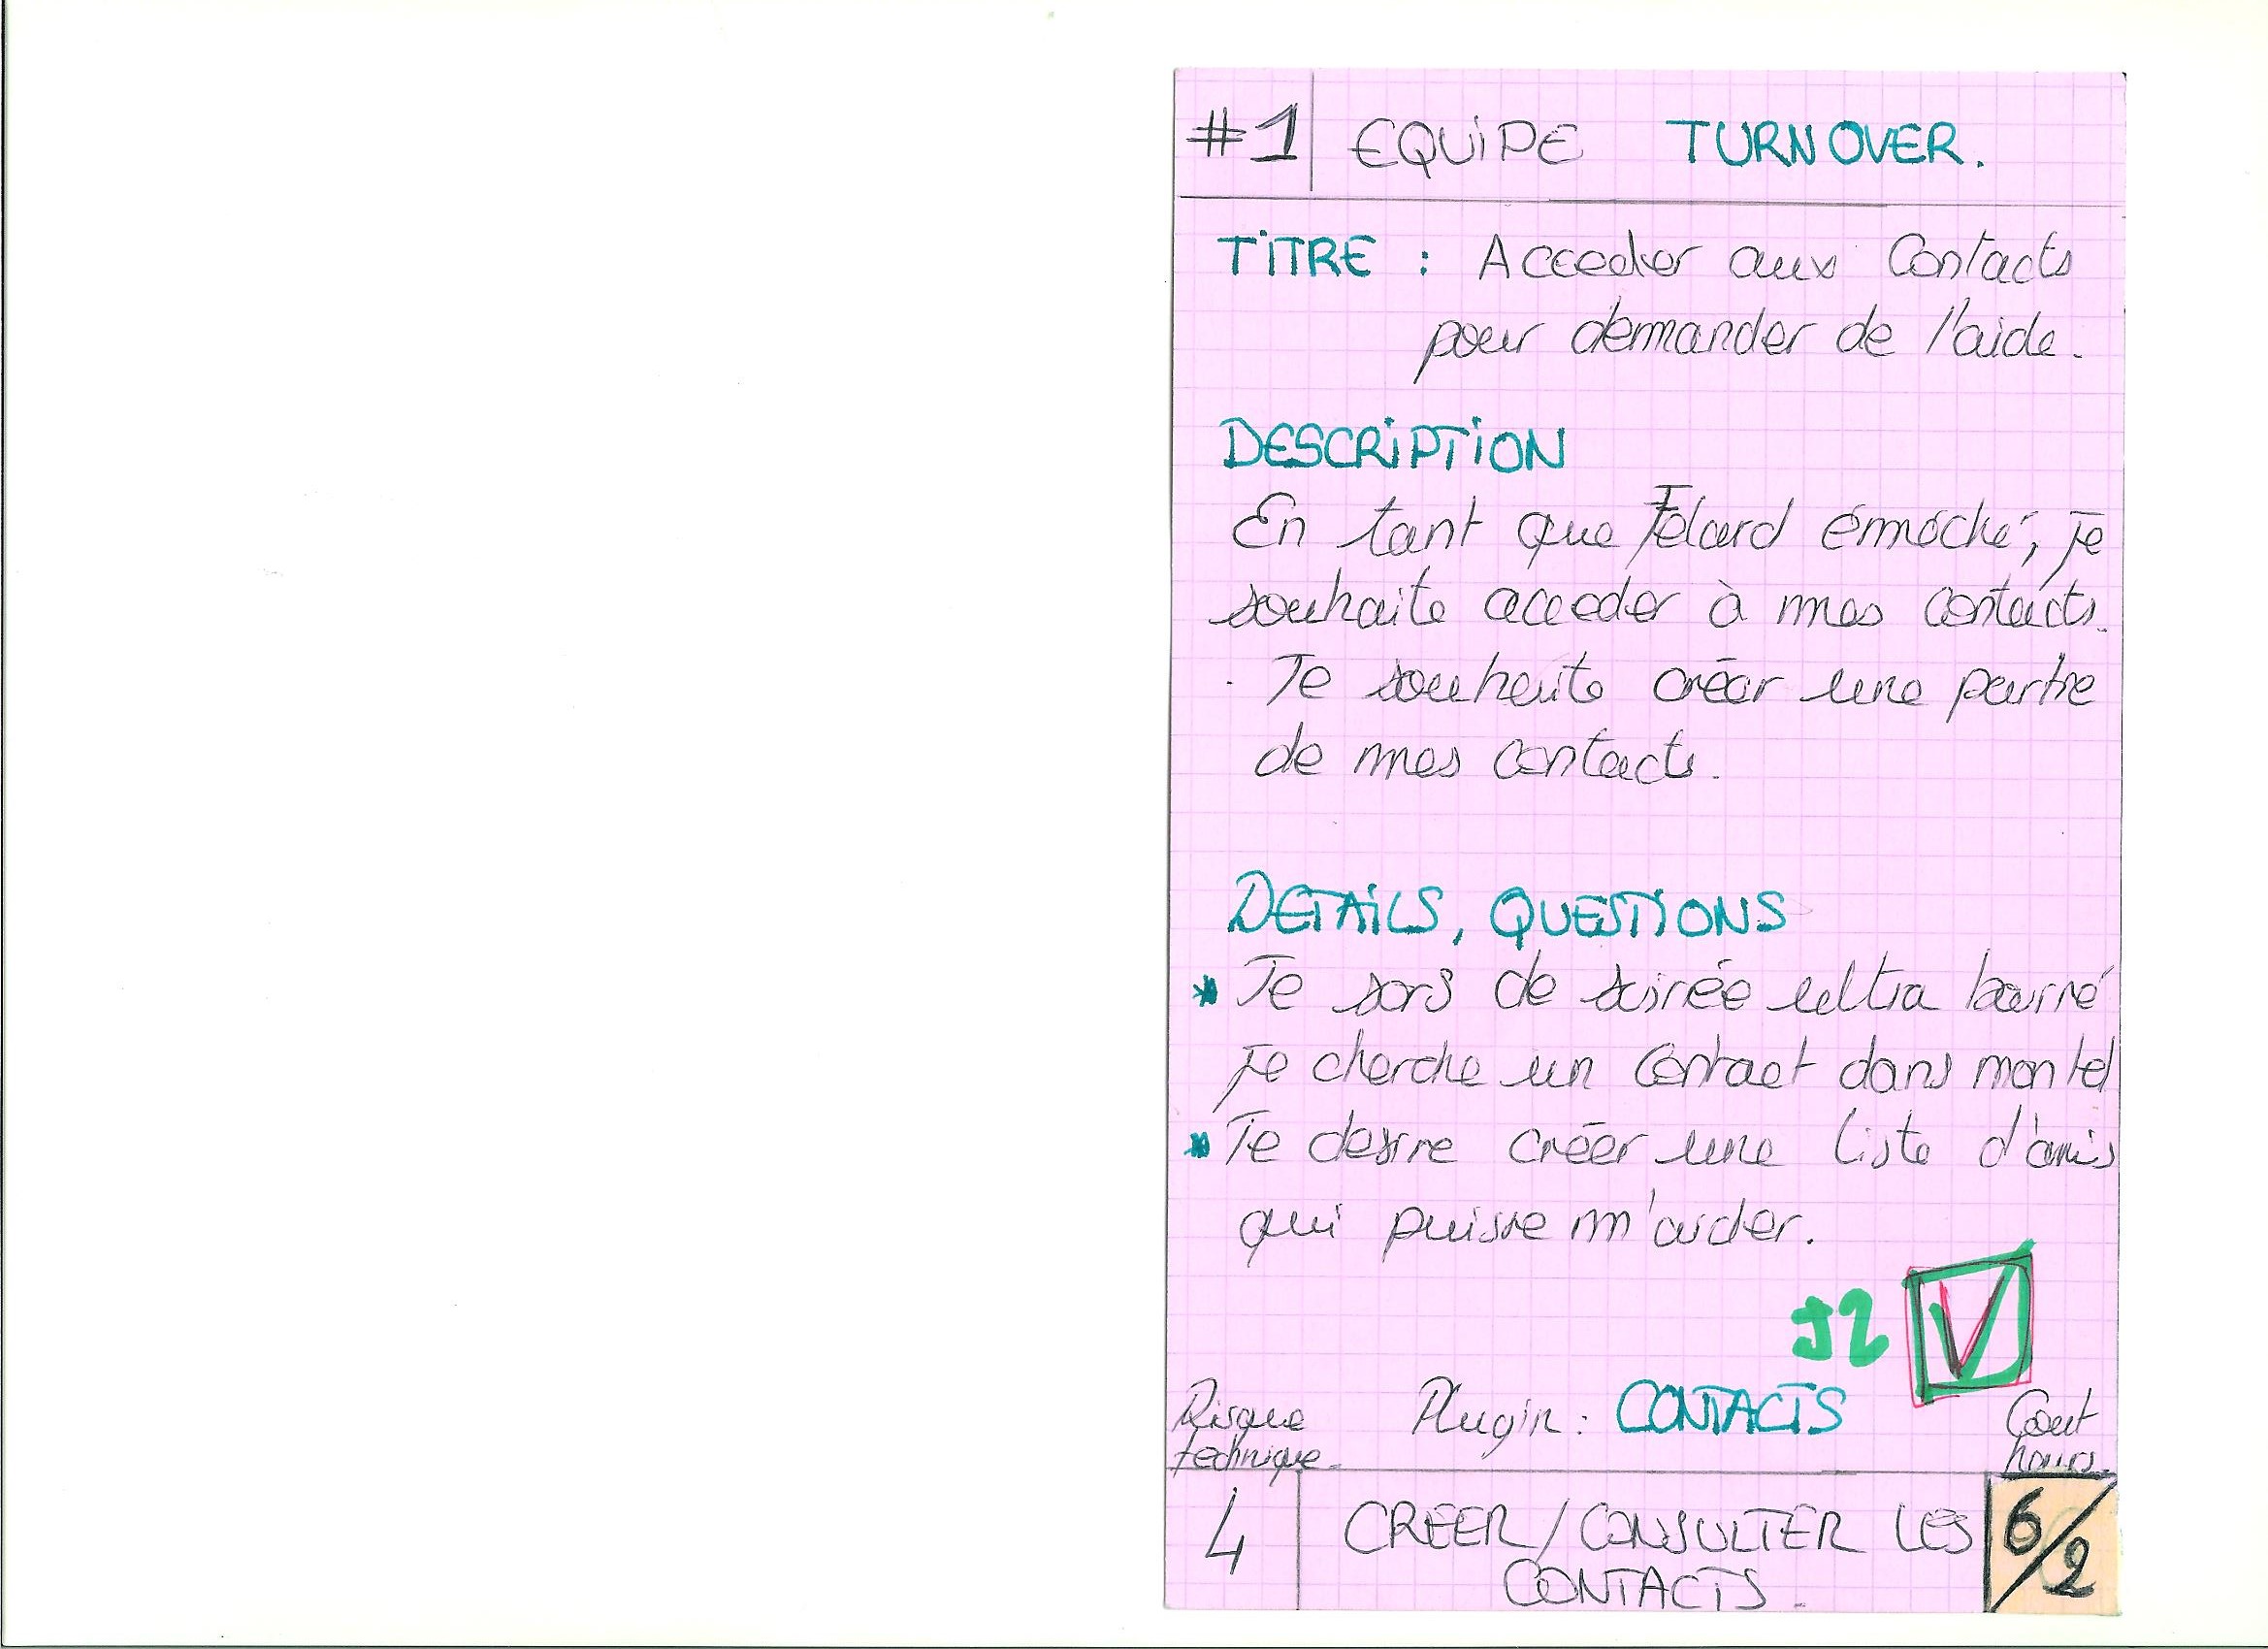 #1 EQUIPE TURNOVER.
TITRE : Acceder aux Contacts
pour demander de l'aide.
DESCRIPTION
En tant que Fêlard éméché, je
souhaite acceder à mes contacts.
- Je souhaite créer une partie
de mes contacts.
DETAILS, QUESTIONS
* Je sors de soirée ultra bourré
je cherche un contact dans mon tel
* Je desire créer une liste d'amis
qui puisse m'aider.
J2
Risque technique. Plugin : CONTACTS Cout hours.
4 CREER/CONSULTER LES CONTACTS. 6/2